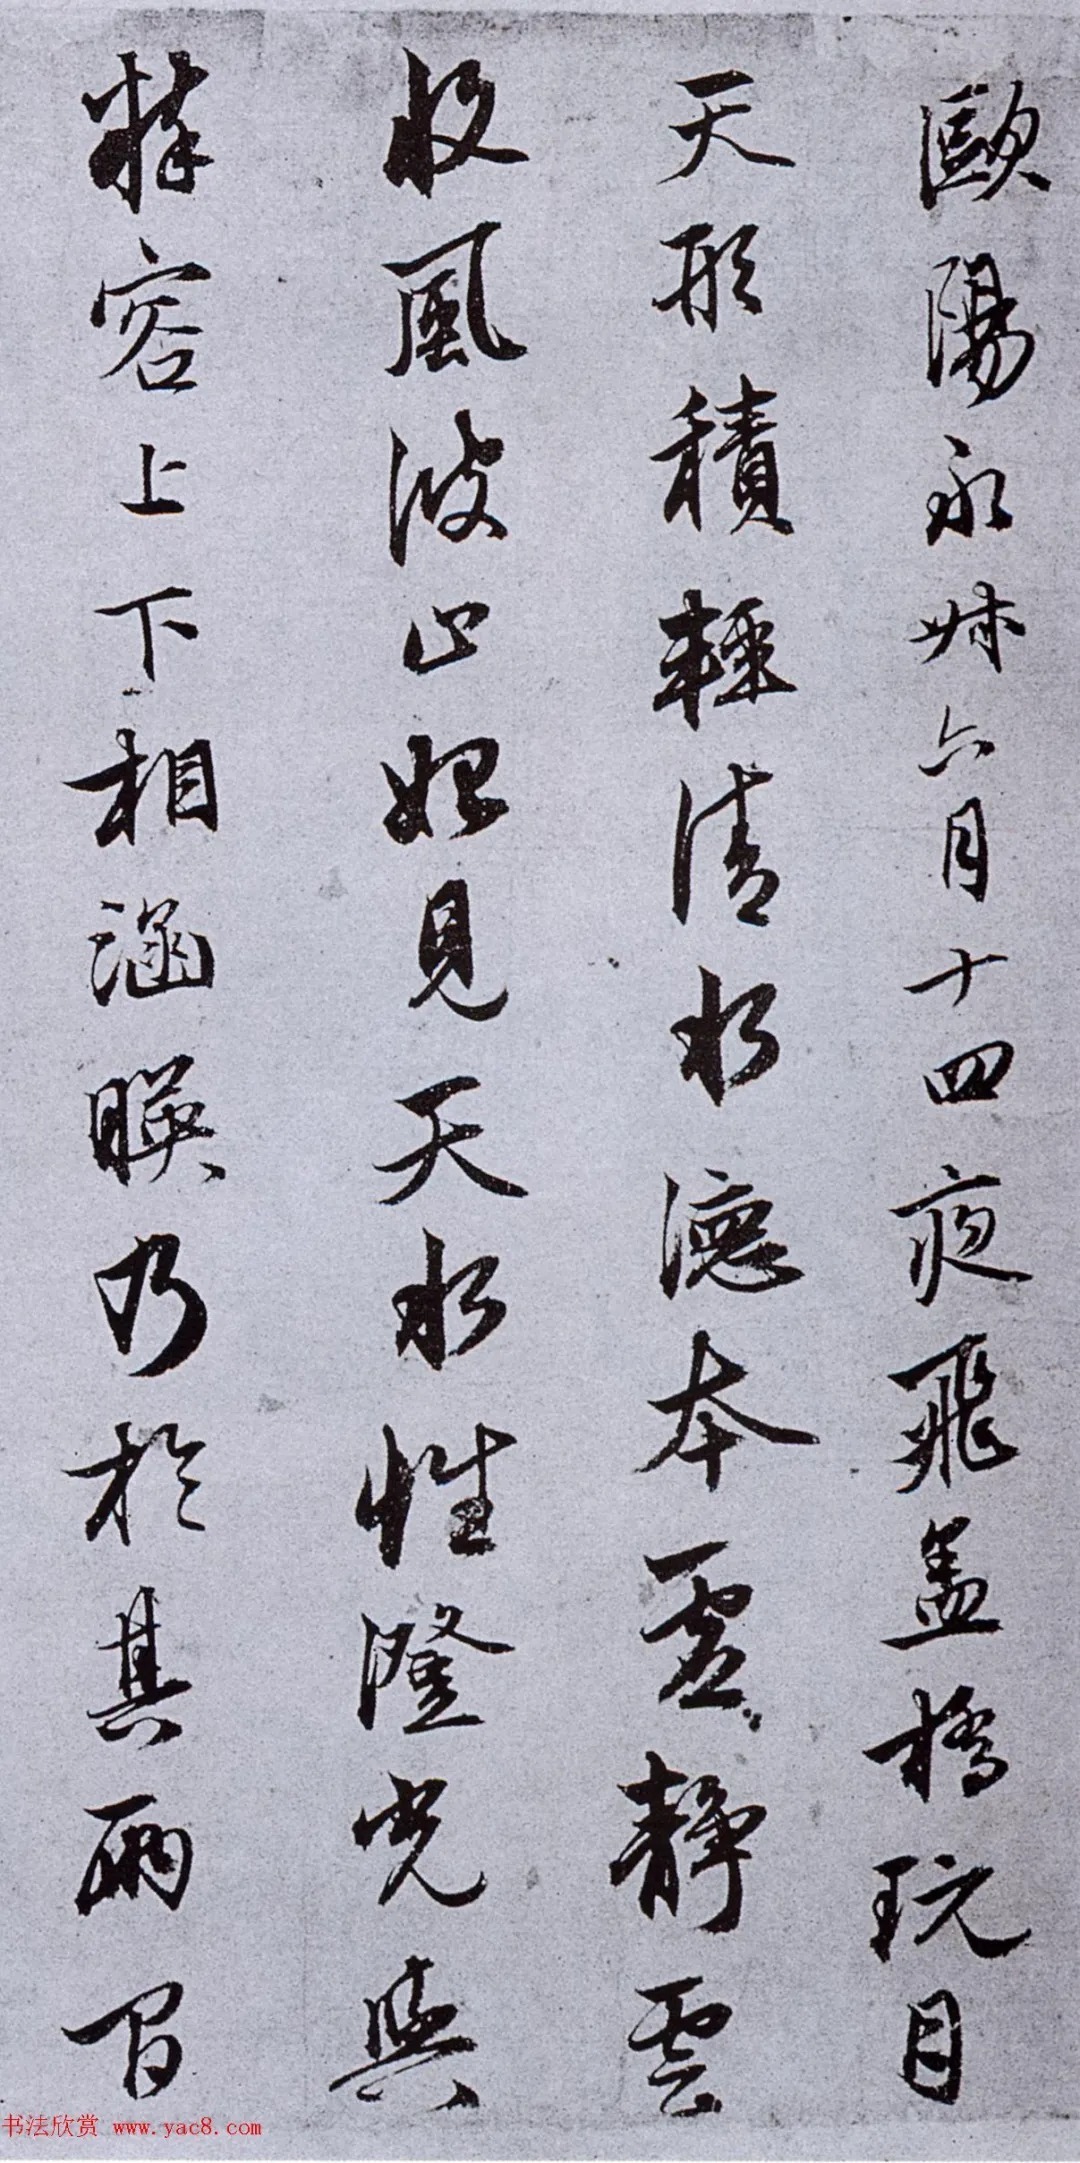 歐陽永叔六月十四夜飛盖橋玩月
天形積輕清水德本虛靜雲
收風波止始見天水性澄光與
粹容上下相涵暎乃於其兩間
书法欣赏 www.yac8.com